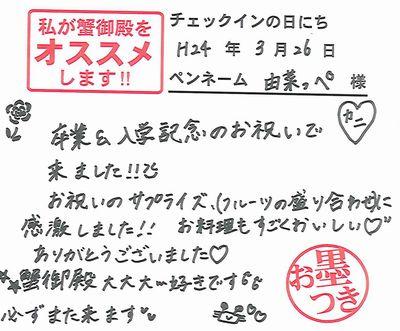 私が蟹御殿を
オススメ
します!!
チェックインの日にち
H24 年 3 月 26 日
ペンネーム 由菜っぺ 様
カニ
卒業&入学記念のお祝いで
来ました!!
お祝いのサプライズ、(フルーツの盛り合わせ)に
感激しました!! お料理もすごくおいしい♡
ありがとうございました♡
蟹御殿大大大〜好きです
必ずまた来ます
お墨つき